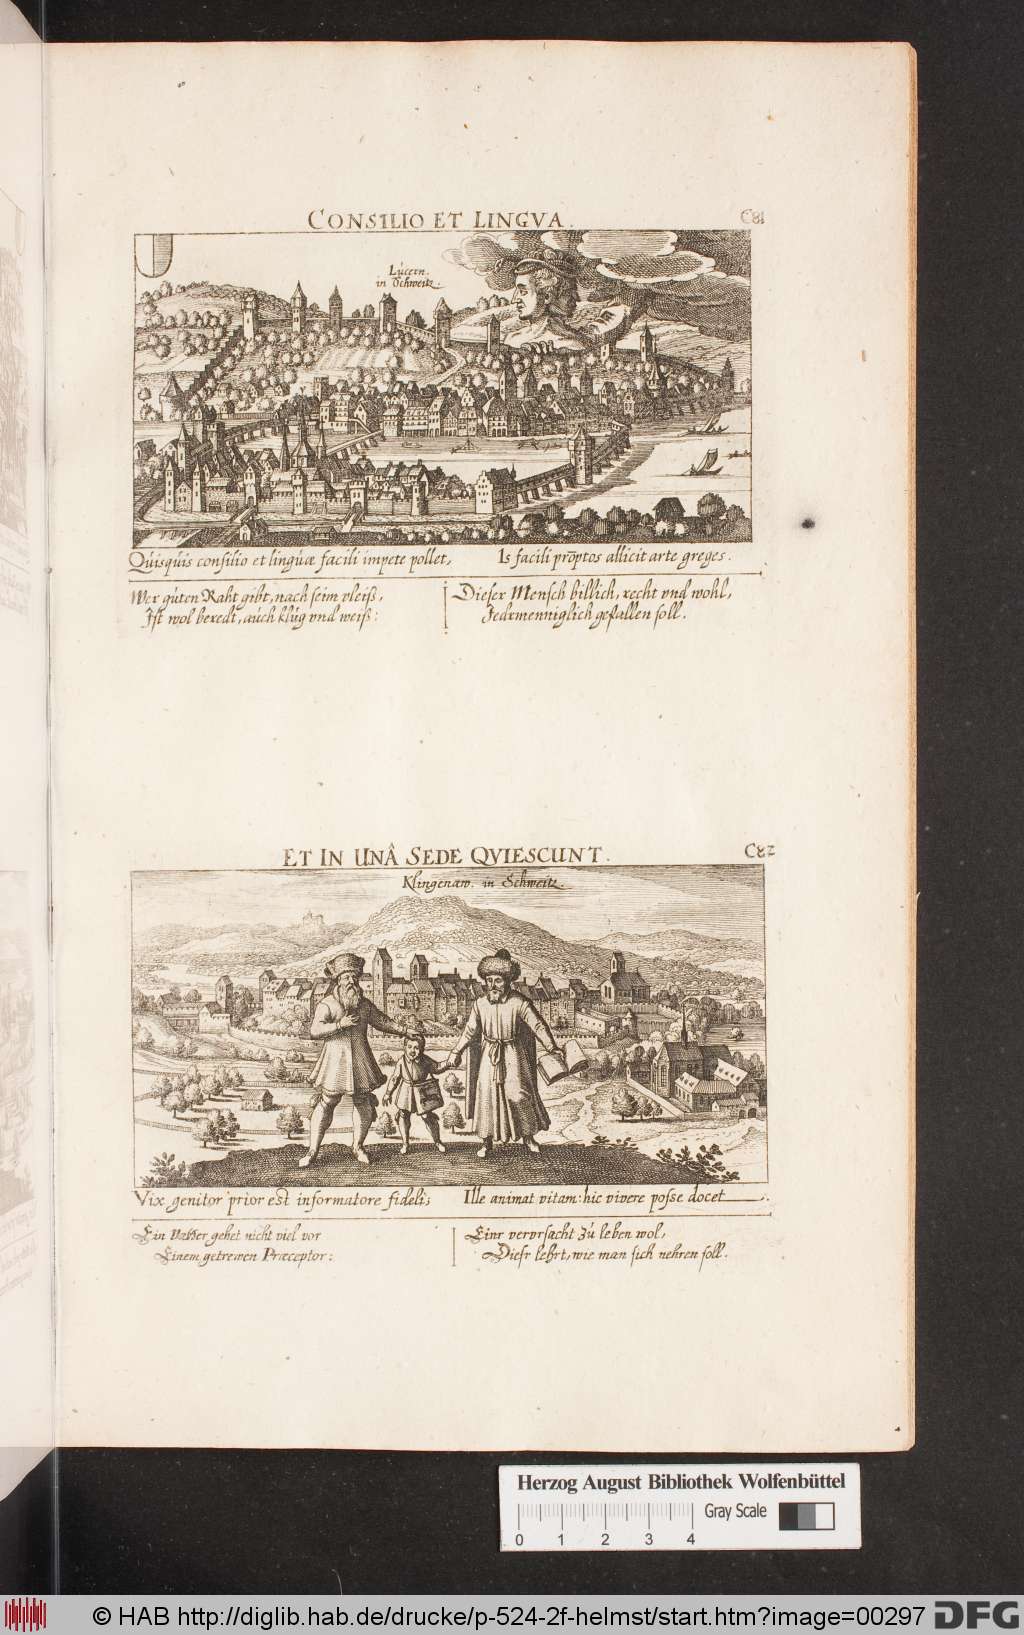 CONSILIO ET LINGVA.
C81
Lucern.
in Schweitz.
Quisquis consilio et linguæ facili impete pollet, Is facili prōptos allicit arte greges.
Wer guten Raht gibt, nach seim vleiß,
Ist wol beredt, auch klug vnd weiß:
Dieser Mensch billich, recht vnd wohl,
Jedrmenniglich gefallen soll.
ET IN UNÂ SEDE QVIESCUNT.
C82
Klingenaw. in Schweitz.
Vix genitor prior est informatore fideli; Ille animat vitam: hic vivere posse docet.
Ein Vatter gehet nicht viel vor
Einem getrewen Præceptor:
Einr vervrsacht zu leben wol,
Diesr lehrt, wie man sich nehren soll.
Herzog August Bibliothek Wolfenbüttel
Gray Scale
0 1 2 3 4
© HAB http://diglib.hab.de/drucke/p-524-2f-helmst/start.htm?image=00297
DFG